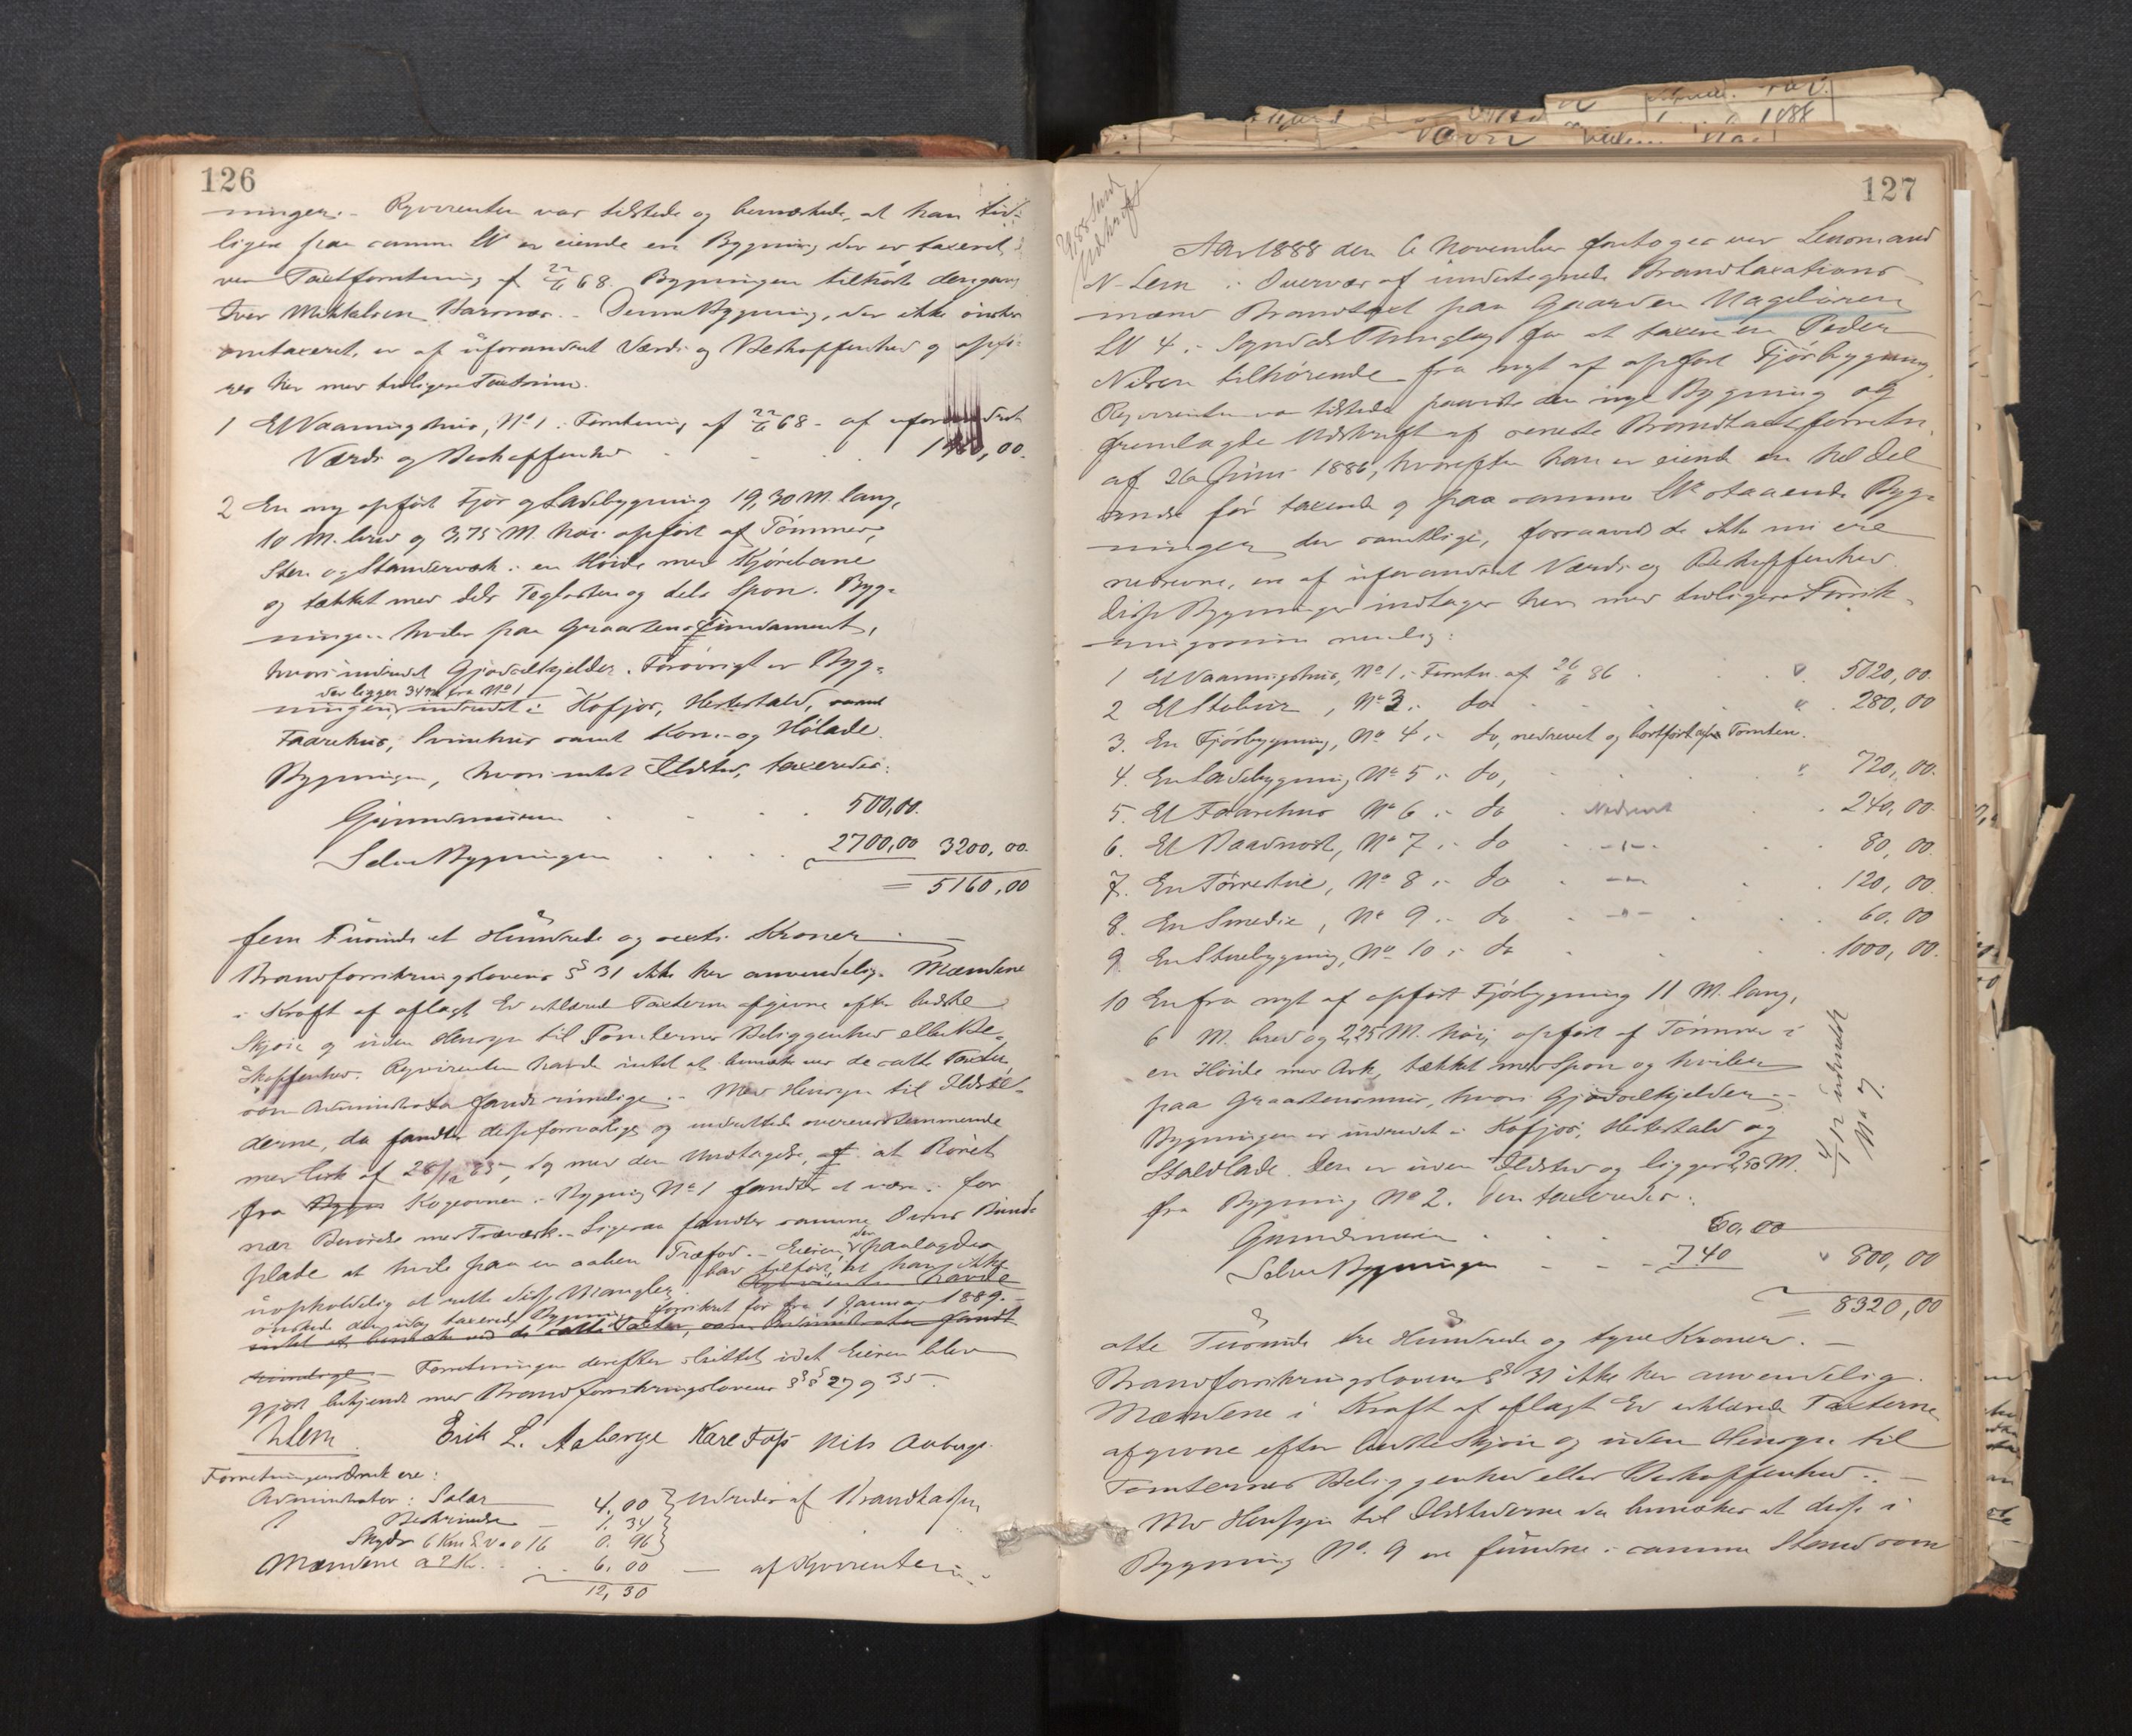 126
ningen. Rqvirenten var tilstede og bemærkede, at han tid-
ligere paa samme LN er eiende en Bygning, der er taxeret
ved Taxtforretning af 22/6 68. Bygningen tilhørte dengang
Iver Mikkelsen. Denne Bygning, der ikke ønskes
omtaxeret, er af uforandret Værdi og Beskaffenhed og opfø-
res her med tidligere Taxtsum.
1 Et Vaaningshus, No 1 i Forretning af 22/6 68 - af uforandret
Værdi og Beskaffenhed
2 En ny opført Fjøs og Ladebygning 19,30 M. lang,
10 M. bred og 3,75 M. høi opført af Tømmer,
Sten og Standerværk i en Høide med Kjørebane
og tækket med dels Teglsten og dels Spon. Byg-
ningen hviler paa Graastens Fundament,
hvori indredet Gjødselkjelder. Forøvrigt er Byg-
der ligger 34 M fra No 1
ningen, indredet i Kofjøs, Hestestald, samt
Faarehus, Svinehus samt Korn- og Hølade.
Bygningen, hvori intet Ildsted, taxeredes:
Grundmuren 500,00.
Selve Bygningen 2700,00 3200,00.
= 5160,00
fem Tusinde et Hundrede og sexti Kroner.
Brandforsikringslovens § 31 ikke her anvendelig. Mændene
i Kraft af aflagt Ed erklærede Taxterne afgivne efter bedste
Skjøn og uden Hensyn til Tomternes Beliggenhed eller Be-
skaffenhed. Rqvirenten havde intet at bemærke ved de satte Taxter,
som Administrator fandt rimelige. Med Hensyn til Ildste-
derne, da fandtes disse forsvarlige og indrettede overensstemmende
med Lov af, dog med den Undtagelse, af at Røret
fra Bygn Kogeovnen i Bygning No 1 fandtes at være i for
nær Berørelse med Træværk. Ligesaa fandtes samme Ovns Bund-
plade at hvile paa en aaben Træfod. Eieren, der paalagdes
uopholdelig at rette disse Mangler, bad tilført, at han ikke
Rqvirenten havde
ønskede den idag taxerede Bygning forsikret før fra 1 Januar 1889.
intet at bemærke ved de satte Taxter, som Administrator fandt
rimelige. Forretningen derefter sluttet, idet Eieren blev
gjort bekjendt med Brandforsikringslovens §§ 27 og 35.
N Lem Erik L. Aaberge Kare Foss Nils Aaberge
Forretningens Omk ere:
Administrator: Salær 4,00 } Udredes af Brandkassen
Beskrivelse 1,34 }
Skyds 6 Km 0,96 }
Mændene a 2 Kr. 6,00 — af Rqvirenten
12,30
127
Udskrift
Aar 1888 den 6 November foretoges ved Lensmand
N. Lem i Overvær af undertegnede Brandtaxations-
mænd Brandtaxt paa Gaarden Nagelören
LN 4 i Thinglag for at taxere en Peder
Nilsen tilhørende fra nyt af opført Fjøsbygning.
Rqvirenten var tilstede, paaviste den nye Bygning og
fremlagde Udskrift af seneste Brandtaxtforretn.
af 26 Juni 1886, hvorefter han er eiende en hel Del
andre før taxerede og paa samme LN staaende Byg-
ninger, der samtlige, forsaavidt de ikke nu ere
nedrevne, ere af uforandret Værdi og Beskaffenhed.
Disse Bygninger indtages her med tidligere Forsik-
ringssum nemlig:
1 Et Vaaningshus, No 1 i Forretn. af 26/6 86 5020,00.
2 Et Stabur, No 3 i do 280,00
3. En Fjøsbygning, No 4 i do, nedrevet og bortført af Tomten.
4. En Ladebygning No 5 i do, 720,00.
5. Et Faarehus No 6 i do Nedrevet 240,00.
6. Et Baadnøst, No 7 i do -"- 80,00.
7. En Tørrestue, No 8 i do -"- 120,00.
8. En Smedie, No 9 i do -"- 60,00
9. En Stuebygning, No 10 i do 1000,00.
10 En fra nyt af opført Fjøsbygning 11 M. lang,
6 M. bred og 2,25 M. høi, opført af Tømmer i
en Høide med Ark, tækket med Spon og hviler
paa Graastensmur, hvori Gjødselkjelder.
Bygningen er indredet i Kofjøs, Hestestald og
Staldlade. Den er uden Ildsted og ligger 2,50 M.
fra Bygning No 2. Den taxeredes:
Grundmuren 60,00
Selve Bygningen 740 800,00
= 8320,00
No 7.
otte Tusinde tre Hundrede og tyve Kroner.
Brandforsikringslovens § 31 ikke her anvendelig.
Mændene i Kraft af aflagt Ed erklærede Taxterne
afgivne efter bedste Skjøn og uden Hensyn til
Tomternes Beliggenhed eller Beskaffenhed.
Med Hensyn til Ildstederne da bemærkes at disse i
Bygning No. 9 ere fundne i samme Stand som